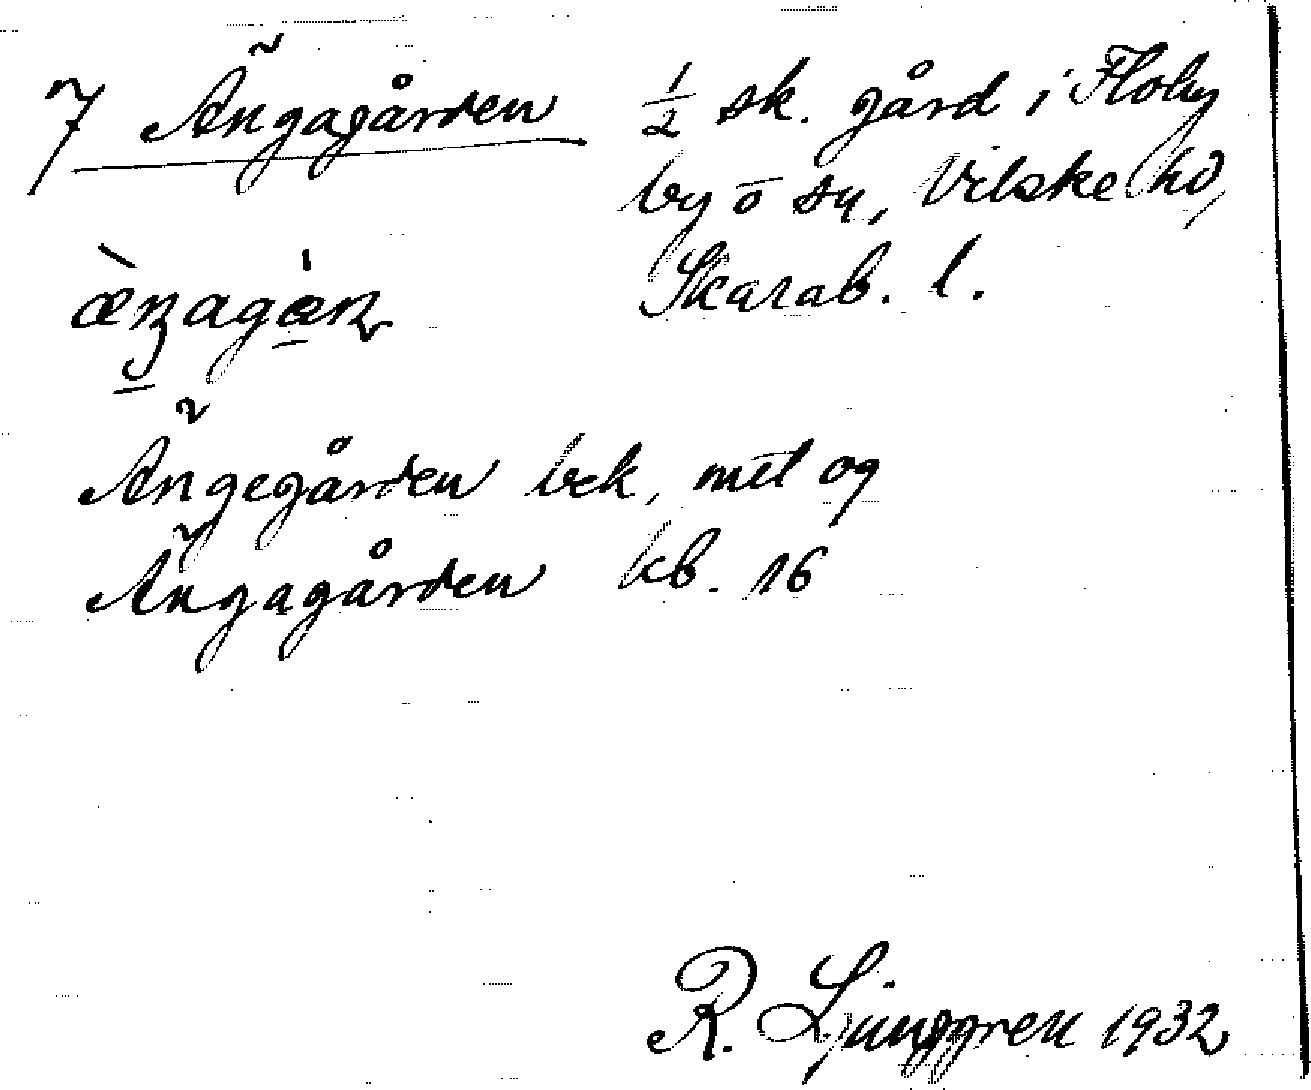 7 Ängagården ½ sk. gård i Floby
by o sn, Vilske hd,
Skarab. l.
Ängegården bek, mtl og
Ängagården kb. 16
R. Ljunggren 1932